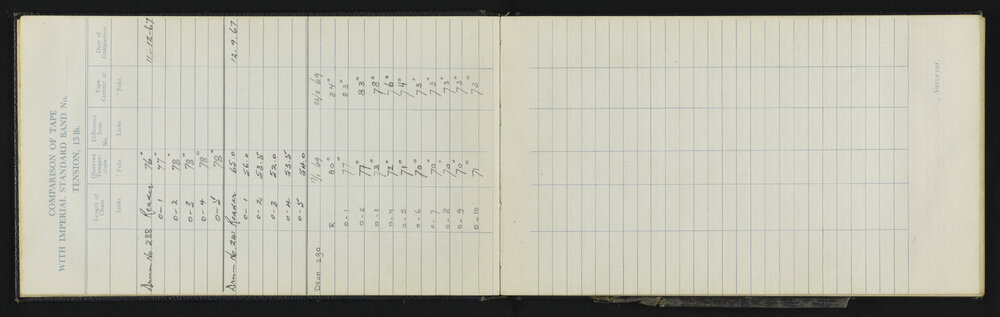 COMPARISON OF TAPE
WITH IMPERIAL STANDARD BAND No.
TENSION, 15 lb.
Length of Chain Observed Temperature Difference from No. Tape Correct at Date of Comparison
Links ° Fahr. Links ° Fahr.
Drum No. 288 Reader 76° 11-12-67
0-1 77°
0-2 78°
0-3 78°
0-4 78°
0-5 78°
Drum No. 241 Reader 65.0 12.9.67
0-1 56.0
0-2 53.5
0-3 52.0
0-4 53.5
0-5 54.0
Drum 290
R 80° 84°
0-1 77° 83°
0-2 77° 83°
0-3 73° 78°
0-4 72° 76°
0-5 71° 74°
0-6 70° 73°
0-7 70° 73°
0-8 70° 73°
0-9 70° 73°
0-10 71 73°
Surveyor